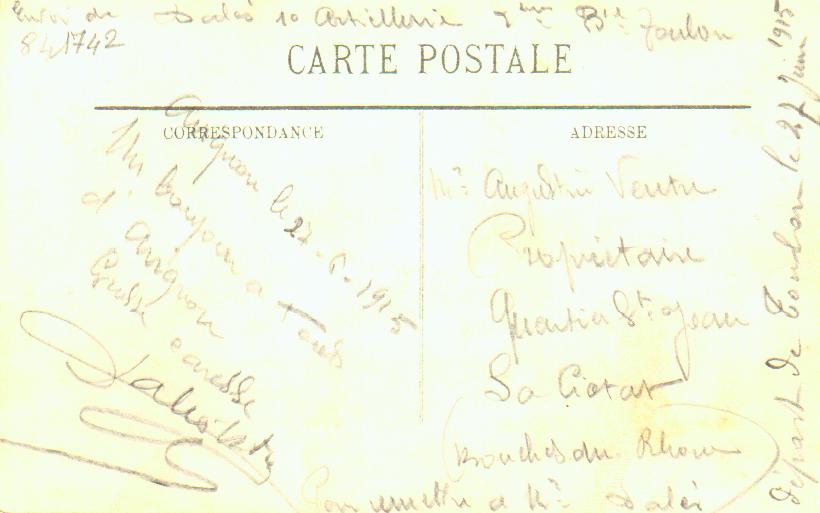 Envoi de Dalès 10 Artillerie 7ème Bie Toulon
841742
CARTE POSTALE
CORRESPONDANCE
Avignon le 27-6-1915
Un bonjour a tous
d'Avignon
Grosse caresse
ADRESSE
Mr Augustin Ventre
Propriétaire
Quartier St Jean
La Ciotat
(Bouches du Rhone)
Pour remettre a Mr Dalès
départ de Toulon le 27 Juin 1915